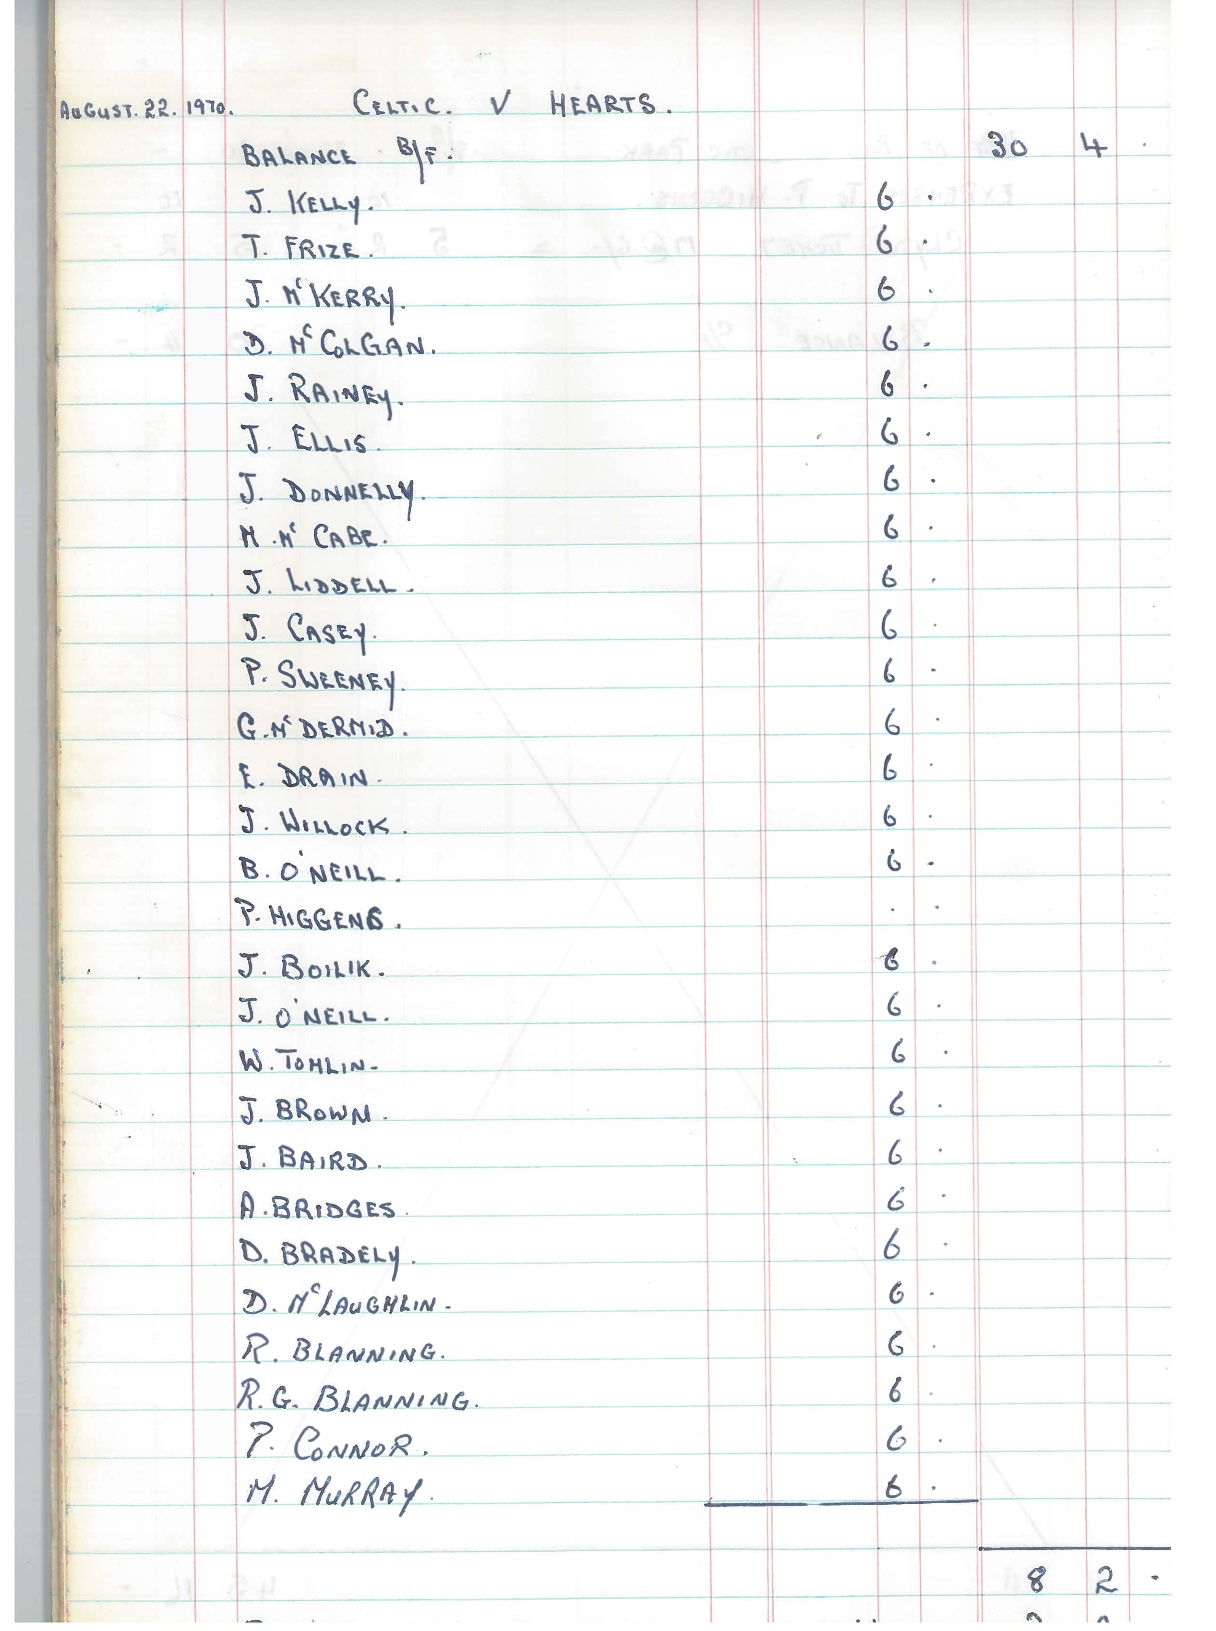 AUGUST. 22. 1970. CELTIC. V HEARTS.
BALANCE B/F. 30 4 .
J. KELLY. 6 .
T. FRIZE. 6 .
J. McKERRY. 6 .
D. McCOLGAN. 6 .
J. RAINEY. 6 .
J. ELLIS. 6 .
J. DONNELLY. 6 .
M. McCABE. 6 .
J. LIDDELL. 6 .
J. CASEY. 6 .
P. SWEENEY. 6 .
G. McDERMID. 6 .
E. DRAIN. 6 .
J. WILLOCK. 6 .
B. O'NEILL. 6 .
P. HIGGENS. . .
J. BOILIK. 6 .
J. O'NEILL. 6 .
W. TOMLIN. 6 .
J. BROWN. 6 .
J. BAIRD. 6 .
A. BRIDGES. 6 .
D. BRADELY. 6 .
D. McLAUGHLIN. 6 .
R. BLANNING. 6 .
R.G. BLANNING. 6 .
P. CONNOR. 6 .
M. MURRAY. 6 .
8 2 .